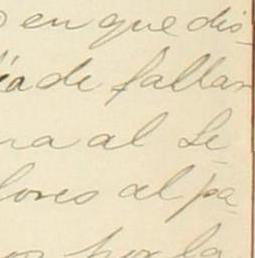 en que dis-
ia de fallar
ra al Se-
lores al pa-
por la